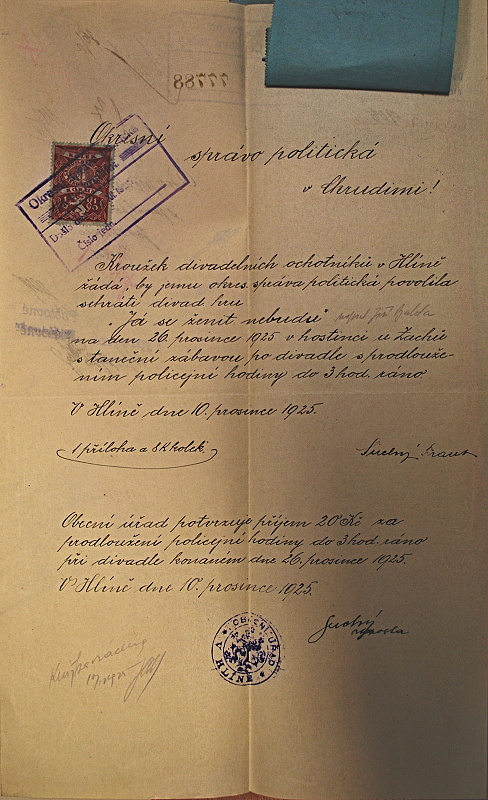 77788
Okresní
správo politická
v Chrudimi!
Okre
Došlo
Číslo jedn.
Kroužek divadelních ochotníků v Hlíně
žádá, by jemu okres. správa politická povolila
sehráti divad. hru
"Já se ženit nebudu"
na den 26. prosince 1925 v hostinci u Zachů
s taneční zábavou po divadle s prodlouže-
ním policejní hodiny do 3 hod. ráno.
V Hlíně dne 10. prosince 1925.
1 příloha a 8 K kolek.
Suchý Frant
Obecní úřad potvrzuje příjem 20 Kč za
prodloužení policejní hodiny do 3 hod. ráno
při divadle konaném dne 26. prosince 1925.
V Hlíně dne 10. prosince 1925.
Suchý
starosta
OBECNÍ ÚŘAD
V HLÍNĚ